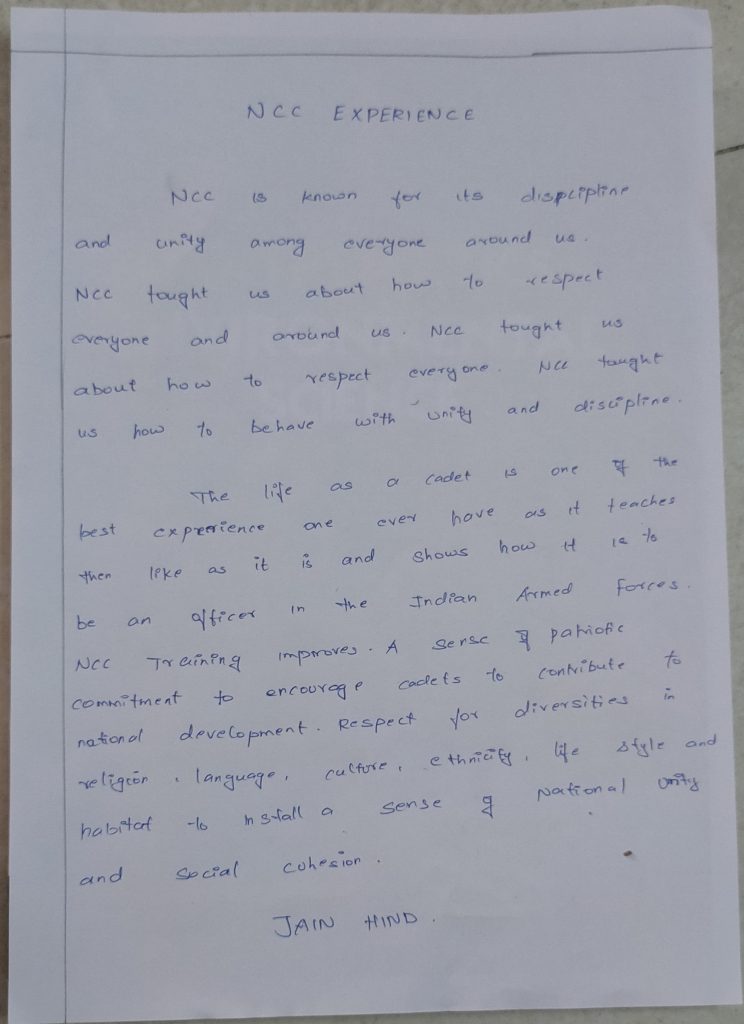 NCC EXPERIENCE
NCC is known for its dispcipline
and unity among everyone around us.
NCC tought us about how to respect
everyone and around us. NCC tought us
about how to respect everyone. NCC taught
us how to behave with unity and discipline.
The life as a cadet is one of the
best experience one ever have as it teaches
then like as it is and shows how it is to
be an officer in the Indian Armed forces.
NCC Training improves. A sense of patriotic
commitment to encourage cadets to contribute to
national development. Respect for diversities in
religion, language, culture, ethnicity, life style and
habitat to Install a sense of National unity
and social cohesion.
JAIN HIND.